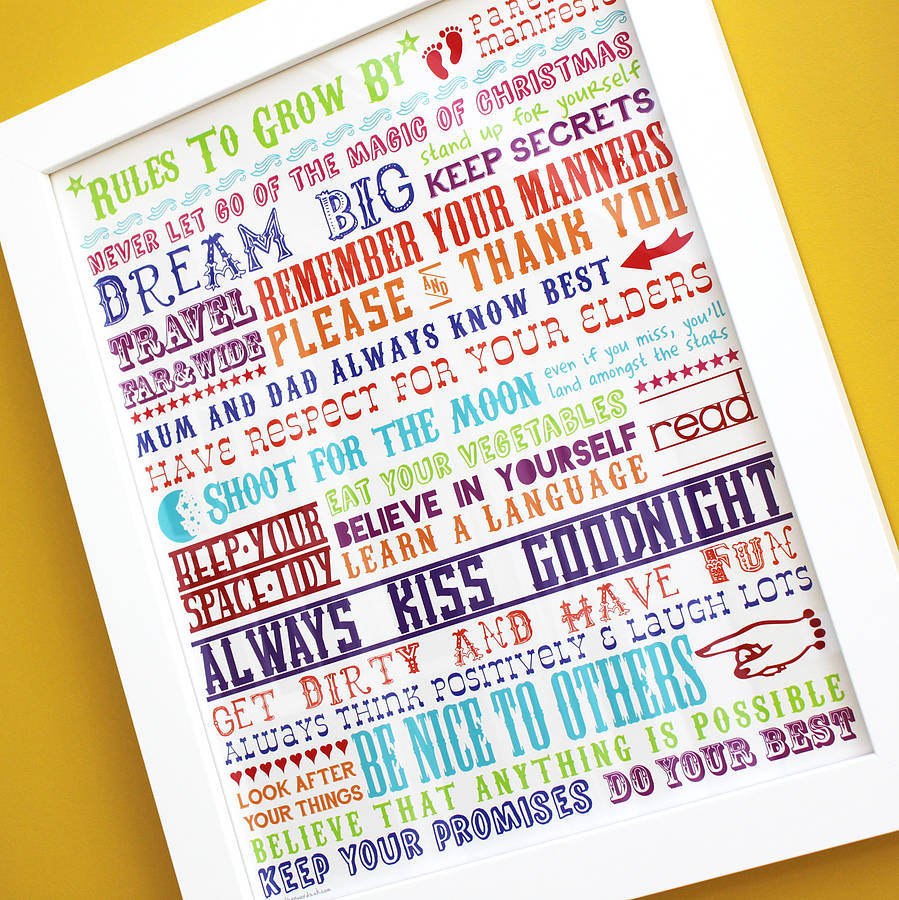 Rules To Grow By
manifesto
NEVER LET GO OF THE MAGIC OF CHRISTMAS
stand up for yourself
DREAM BIG
KEEP SECRETS
REMEMBER YOUR MANNERS
TRAVEL
FAR&WIDE
PLEASE AND THANK YOU
MUM AND DAD ALWAYS KNOW BEST
HAVE RESPECT FOR YOUR ELDERS
SHOOT FOR THE MOON
even if you miss, you'll
land amongst the stars
EAT YOUR VEGETABLES
read
BELIEVE IN YOURSELF
LEARN A LANGUAGE
KEEP·YOUR
SPACE·TIDY
ALWAYS KISS GOODNIGHT
GET DIRTY AND HAVE FUN
ALWAYS THINK POSITIVELY & LAUGH LOTS
BE NICE TO OTHERS
LOOK AFTER
YOUR THINGS
BELIEVE THAT ANYTHING IS POSSIBLE
KEEP YOUR PROMISES
DO YOUR BEST